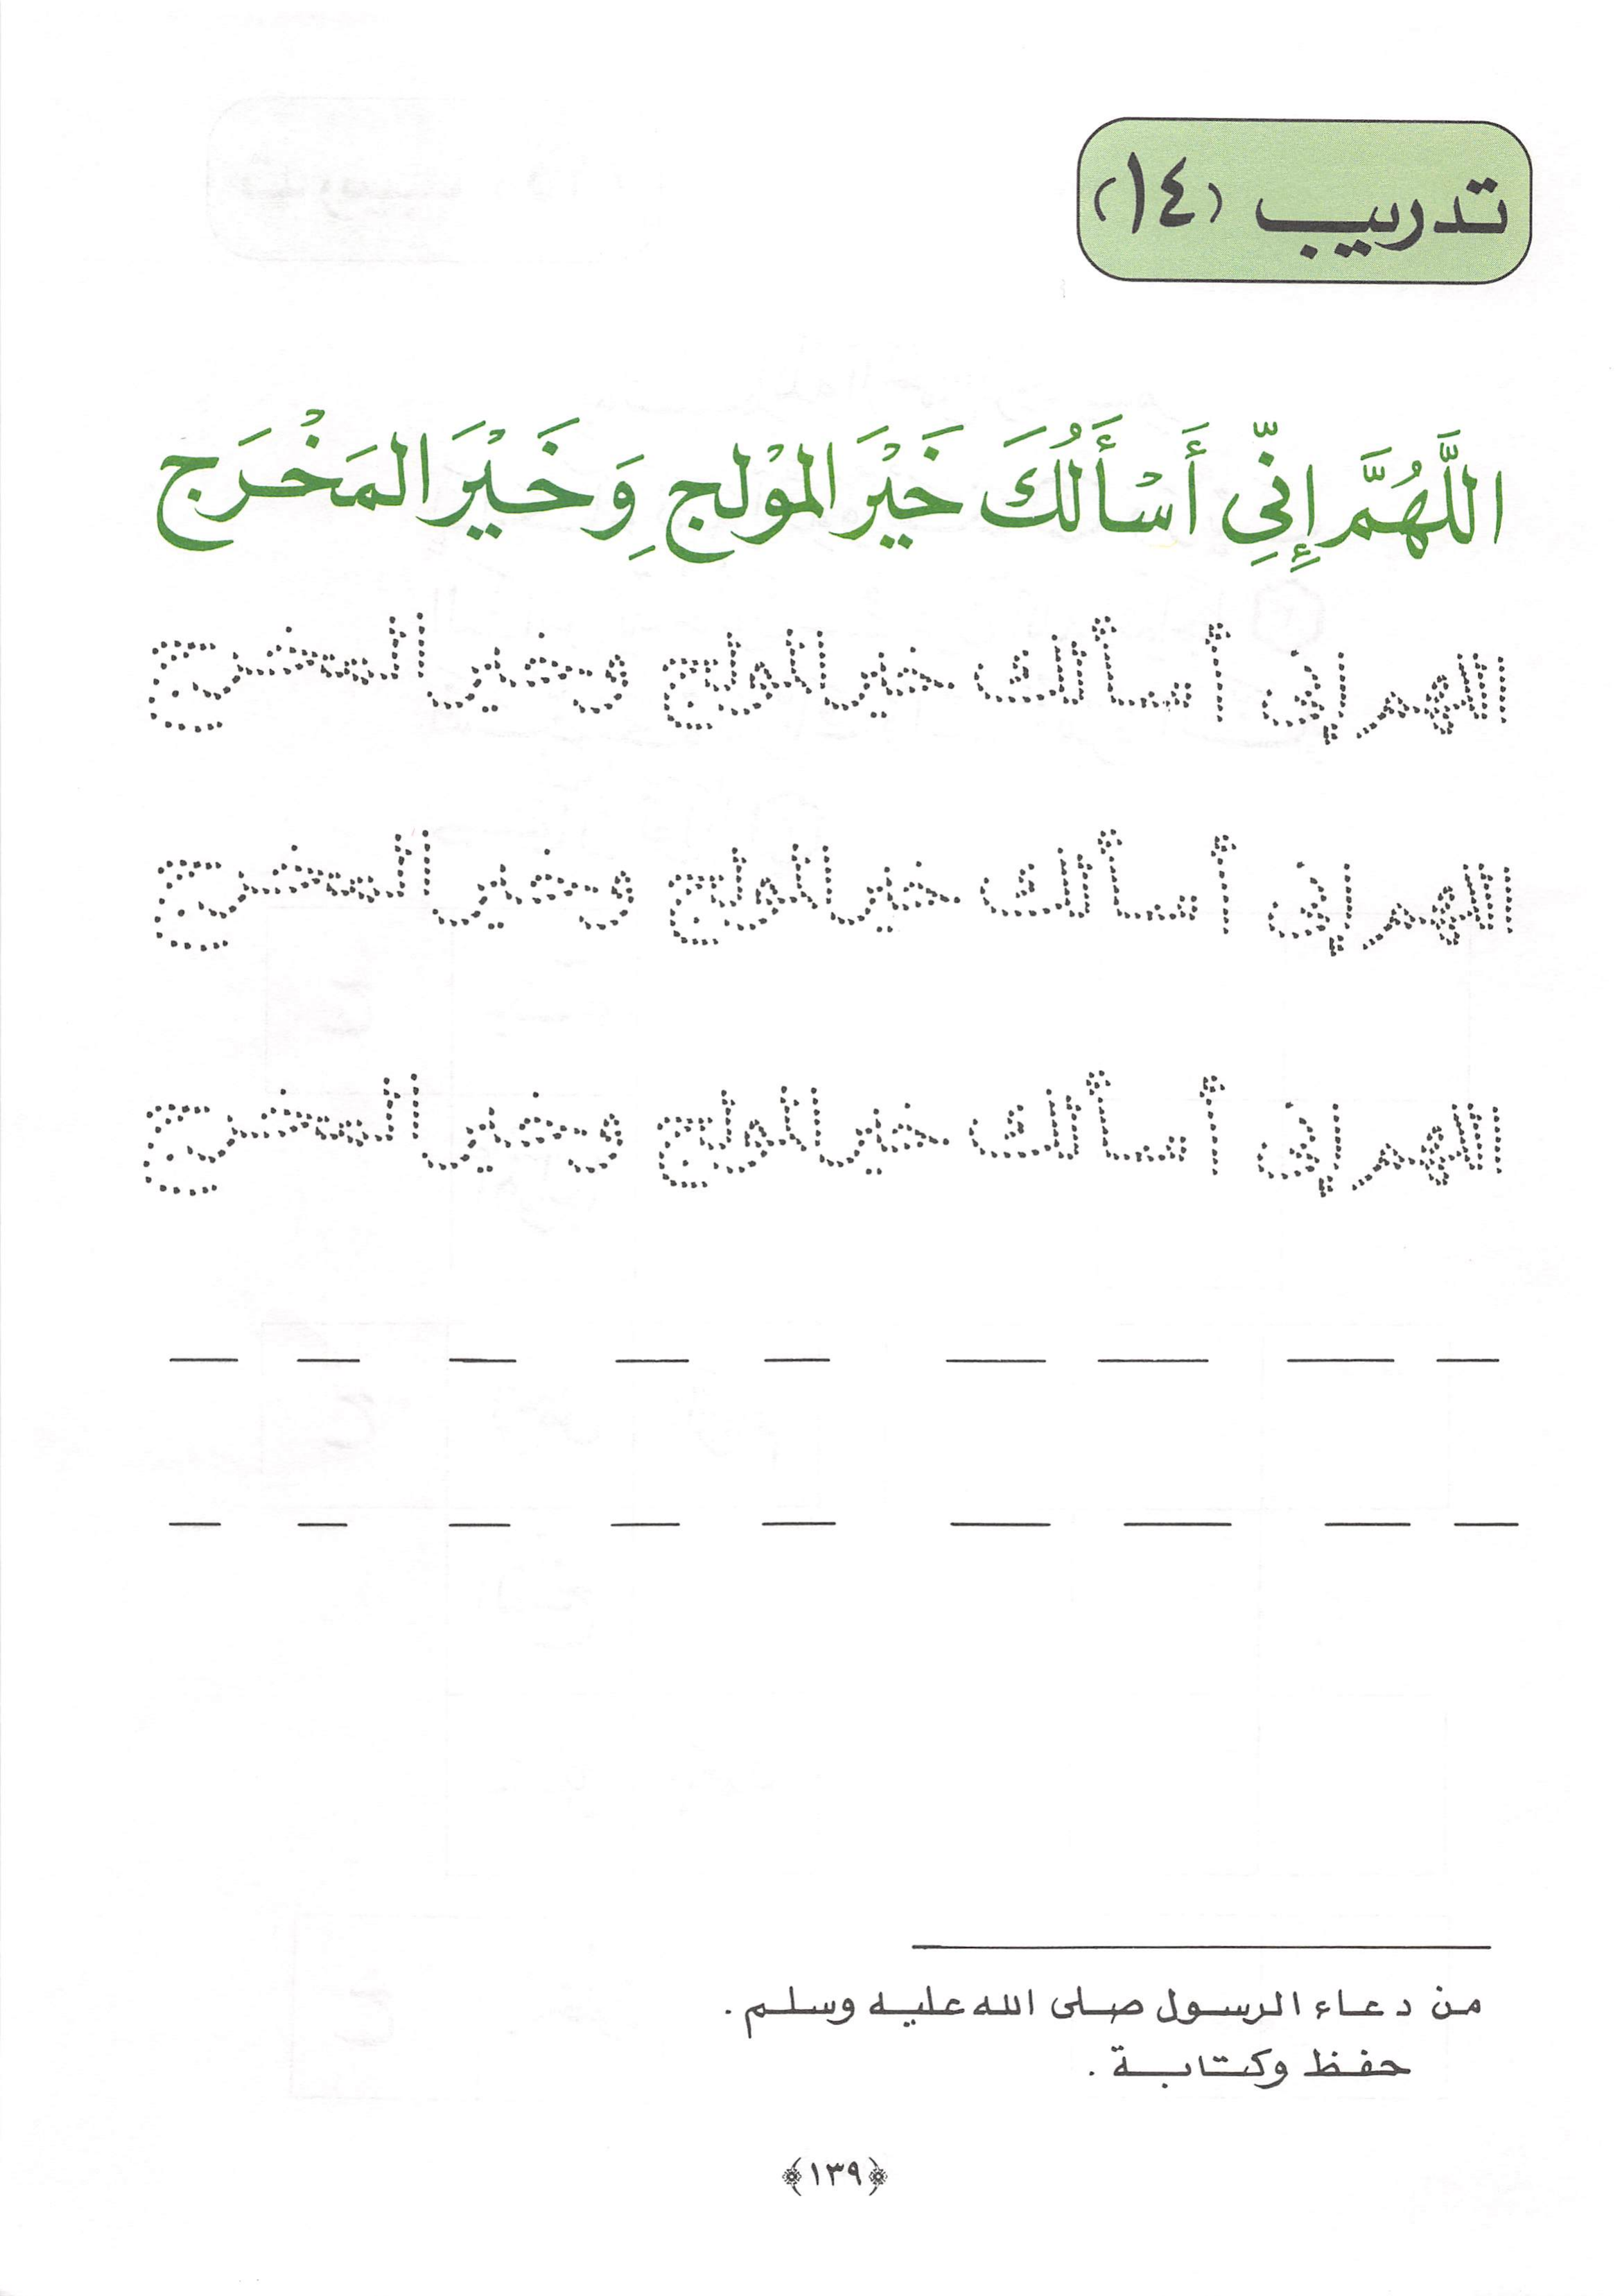 تدريب (١٤)
اللَّهُمَّ إِنِّي أَسْأَلُكَ خَيْرَ المَوْلجِ وَخَيْرَ المَخْرَج
اللهم إني أسألك خير المولج وخير المخرج
اللهم إني أسألك خير المولج وخير المخرج
اللهم إني أسألك خير المولج وخير المخرج
من دعاء الرسول صلى الله عليه وسلم.
حفظ وكتابة.
﴿١٣٩﴾